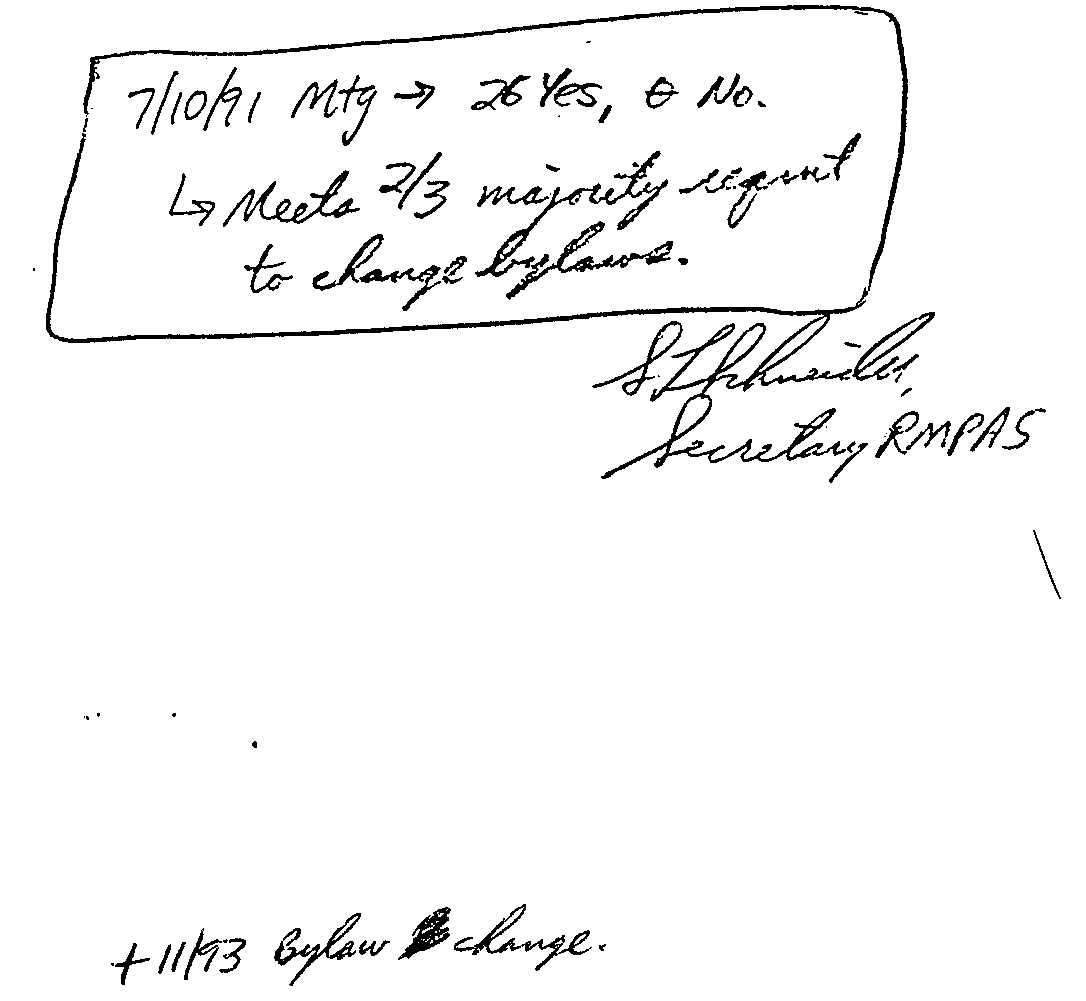 7/10/91 Mtg → 26 Yes, 0 No.
↳ Meets 2/3 majority reqmt
to change bylaws.
S L Schneider,
Secretary RMPAS
+ 11/93 Bylaw change.